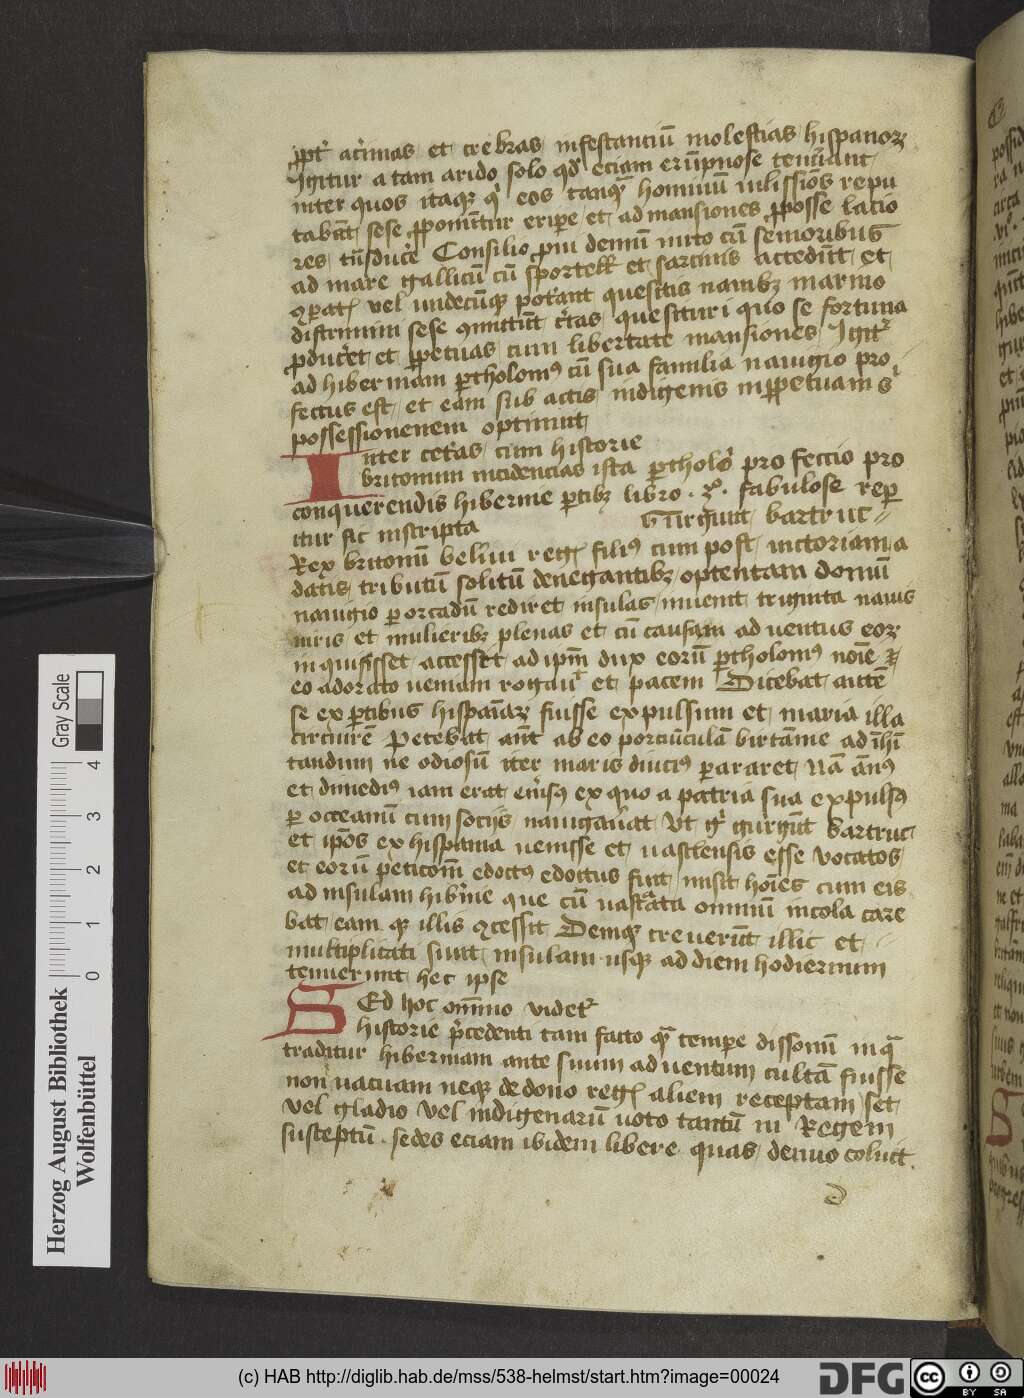 ꝓpt̄ acͥimas et crebras infestanciū molestias hispanoꝝ
Igitur a tam arido solo qd̄ eciam erūpnose tenuant
inter quos itaqꝫ qͥ eos tanqᷓ hominū uilissiōs repu
tabāt sese ꝓponūtur eripe et ad mansiones ꝓposse lacio
Consilio pͥui demū inito cū senioribus
ad mare gallicū cū sportell' et sarcinis accedūt et
ꝯpatꝭ vel undecūqꝫ potant quesitis nauibꝫ marino
discrimini sese ꝯmittūt cͭtas quesituri quo se fortuna
ꝓducͭet et ꝑpetuas cum libertate mansiones Igitᷣ
ad hiberniam ꝑtholomꝰ cū sua familia nauigio pro
fectus est et eam sub actis indigenis inꝑpetuam s
possessionenem optinuit
Inter cetͭas cum historie
britonum incidencias ista ꝑtholoͥ pro feccio pro
conquerendis hibernie ꝑtibꝫ libro .x. fabulose rep
itur sic inscripta
Gurguīt bartruc
Rex britonū belini regꝭ filiꝰ cum post uictoriam a
datis tributū solitū denegantibꝫ optentam domū
nauigio ꝑ orcadū rediret insulas inuenit triginta nauis
uiris et mulieribꝫ plenas et cū causam ad uentus eoꝝ
inquisisset accesset ad ip̄m dux eorū ꝑtholomꝰ noīe ꝛ
eo adorato ueniam rogauͭ et pacem Dicebat autē
se ex ꝑtibus hispaniaꝝ fuisse expulsum et maria illa
circuire Petebat aūt ab eo porciūculā birtāme ad īhī
tandum ne odiosū iter maris diuciꝰ ꝑararet Nā ānꝰ
et dimediꝰ iam erat emͥsꝰ ex quo a patria sua expulsꝰ
ꝑ occeanū cum socijs nauigauͭat Vt gͥ gurguīt bartruc
et ipōs ex hispania uenisse et uasclensis esse vocatos
et eorū peticōem̄ edoctꝰ edoctus fuit misit hoīes cum eis
ad insulam hibͥnie que cū uastata omniū incola care
bat eam qꝫ illis ꝯcessit Demqꝫ creuerūt illic et
multiplicati sunt insulam usqꝫ ad diem hodiernum
tenuerunt hec ipse
Sed hoc om̄nio videtᷣ
historie pͥcedenti tam facto qᷓ tempe dissonū inqᷓ
traditur hiberniam ante suum aduentum cultā fuisse
non uacuam neqꝫ de dono regꝭ aliem receptam set
vel gladio vel indigenarū uoto tantū in Regem
susceptū. sedes eciam ibidem libere quas denuo coluit.
Gray Scale
4 3 2 1 0
Herzog August Bibliothek
Wolfenbüttel
(c) HAB http://diglib.hab.de/mss/538-helmst/start.htm?image=00024
DFG
cc
BY SA